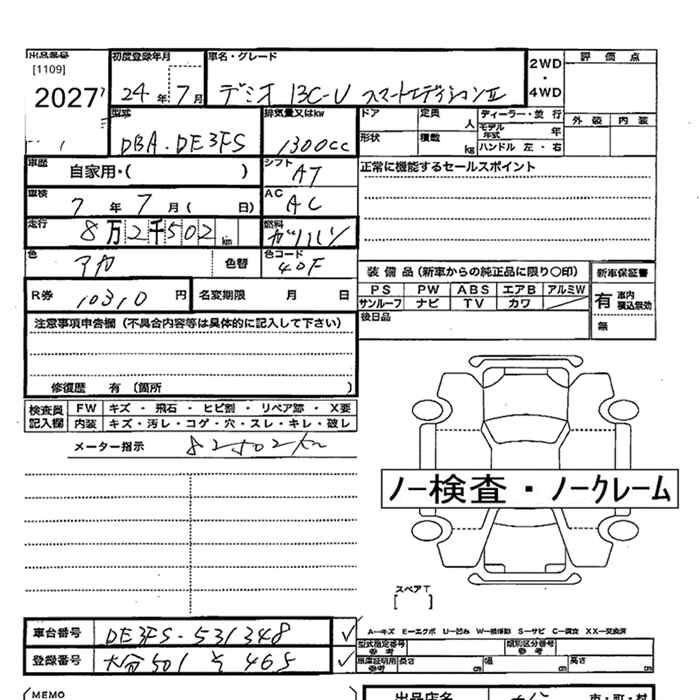 出品番号 初度登録年月 車名・グレード 2WD・4WD 評価点
[1109]
20277 24年7月 デミオ 13C-V スマートエディションⅡ
型式 排気量又はkw ドア 定員 人 ディーラー・並行 外装 内装
DBA-DE3FS 1300cc 形状 積載 kg モデル年式 年
ハンドル 左・右
車歴 自家用・( ) シフト AT 正常に機能するセールスポイント
車検 7年7月( 日) AC AC
走行 8万2千502km 燃料 ガソリン
色 アカ 色替 色コード 40F 装備品(新車からの純正品に限り〇印) 新車保証書
R券 10310円 名変期限 月 日 PS PW ABS エアB アルミW 有 車内積込無効
サンルーフ ナビ TV カワ 無
注意事項申告欄(不具合内容等は具体的に記入して下さい) 後日品
修復歴 有(箇所 )
検査員記入欄 FW キズ・飛石・ヒビ割・リペア跡・X要
内装 キズ・汚レ・コゲ・穴・スレ・キレ・破レ
メーター指示 82502km
ノー検査・ノークレーム
スペアT
[ ]
車台番号 DE3FS-531348 ✓
登録番号 大分501 そ 465 ✓
A―キズ E―エクボ U―凹ミ W―補修跡 S―サビ C―腐食 XX―交換済
型式指定番号 参考 類別区分番号 参考
車庫証明用 参考 長さ cm 幅 cm 高さ cm
MEMO 出品店名 市・町・村